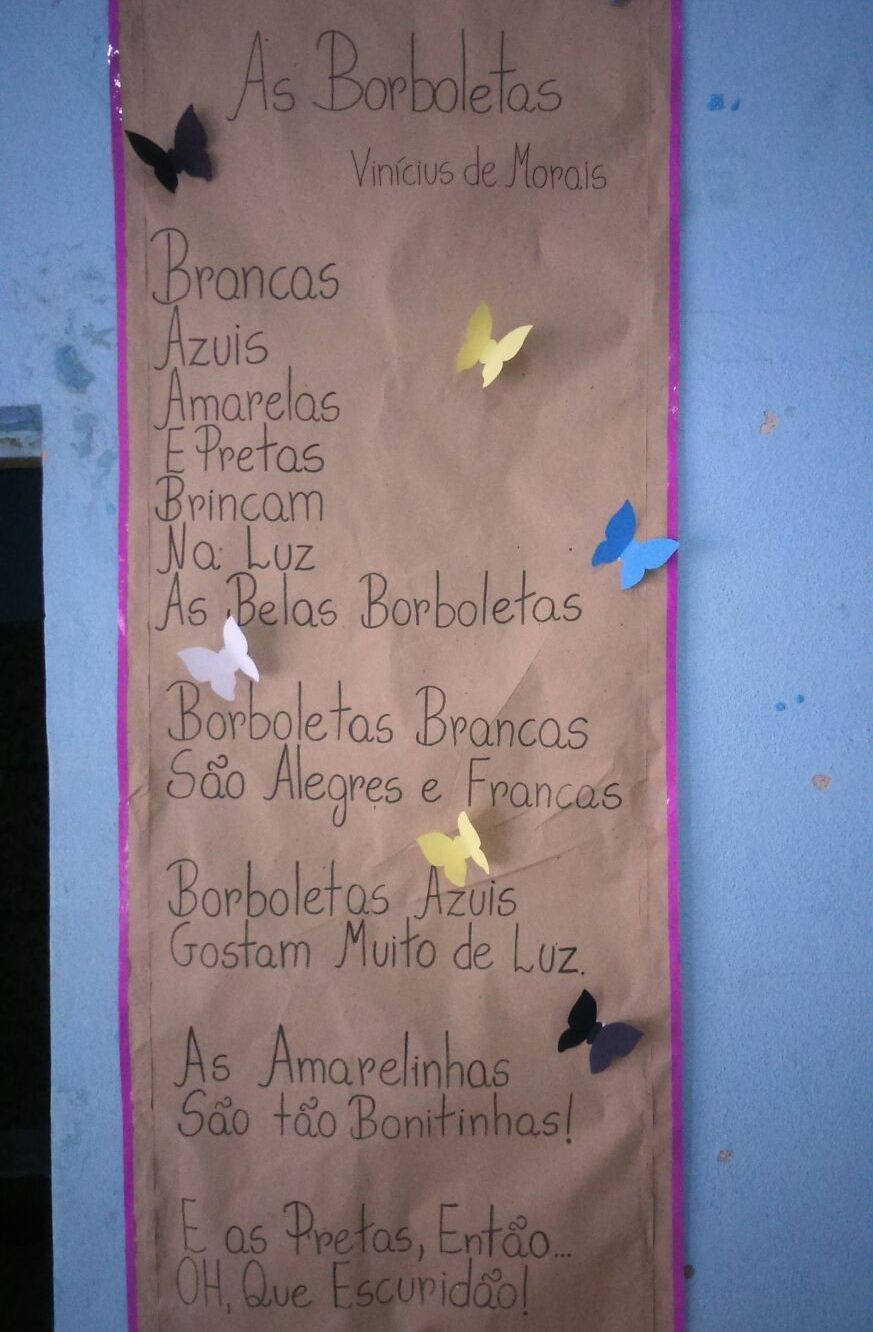 As Borboletas
Vinícius de Morais
Brancas
Azuis
Amarelas
E Pretas
Brincam
Na Luz
As Belas Borboletas
Borboletas Brancas
São Alegres e Francas
Borboletas Azuis
Gostam Muito de Luz.
As Amarelinhas
São tão Bonitinhas!
E as Pretas, Então...
OH, Que Escuridão!